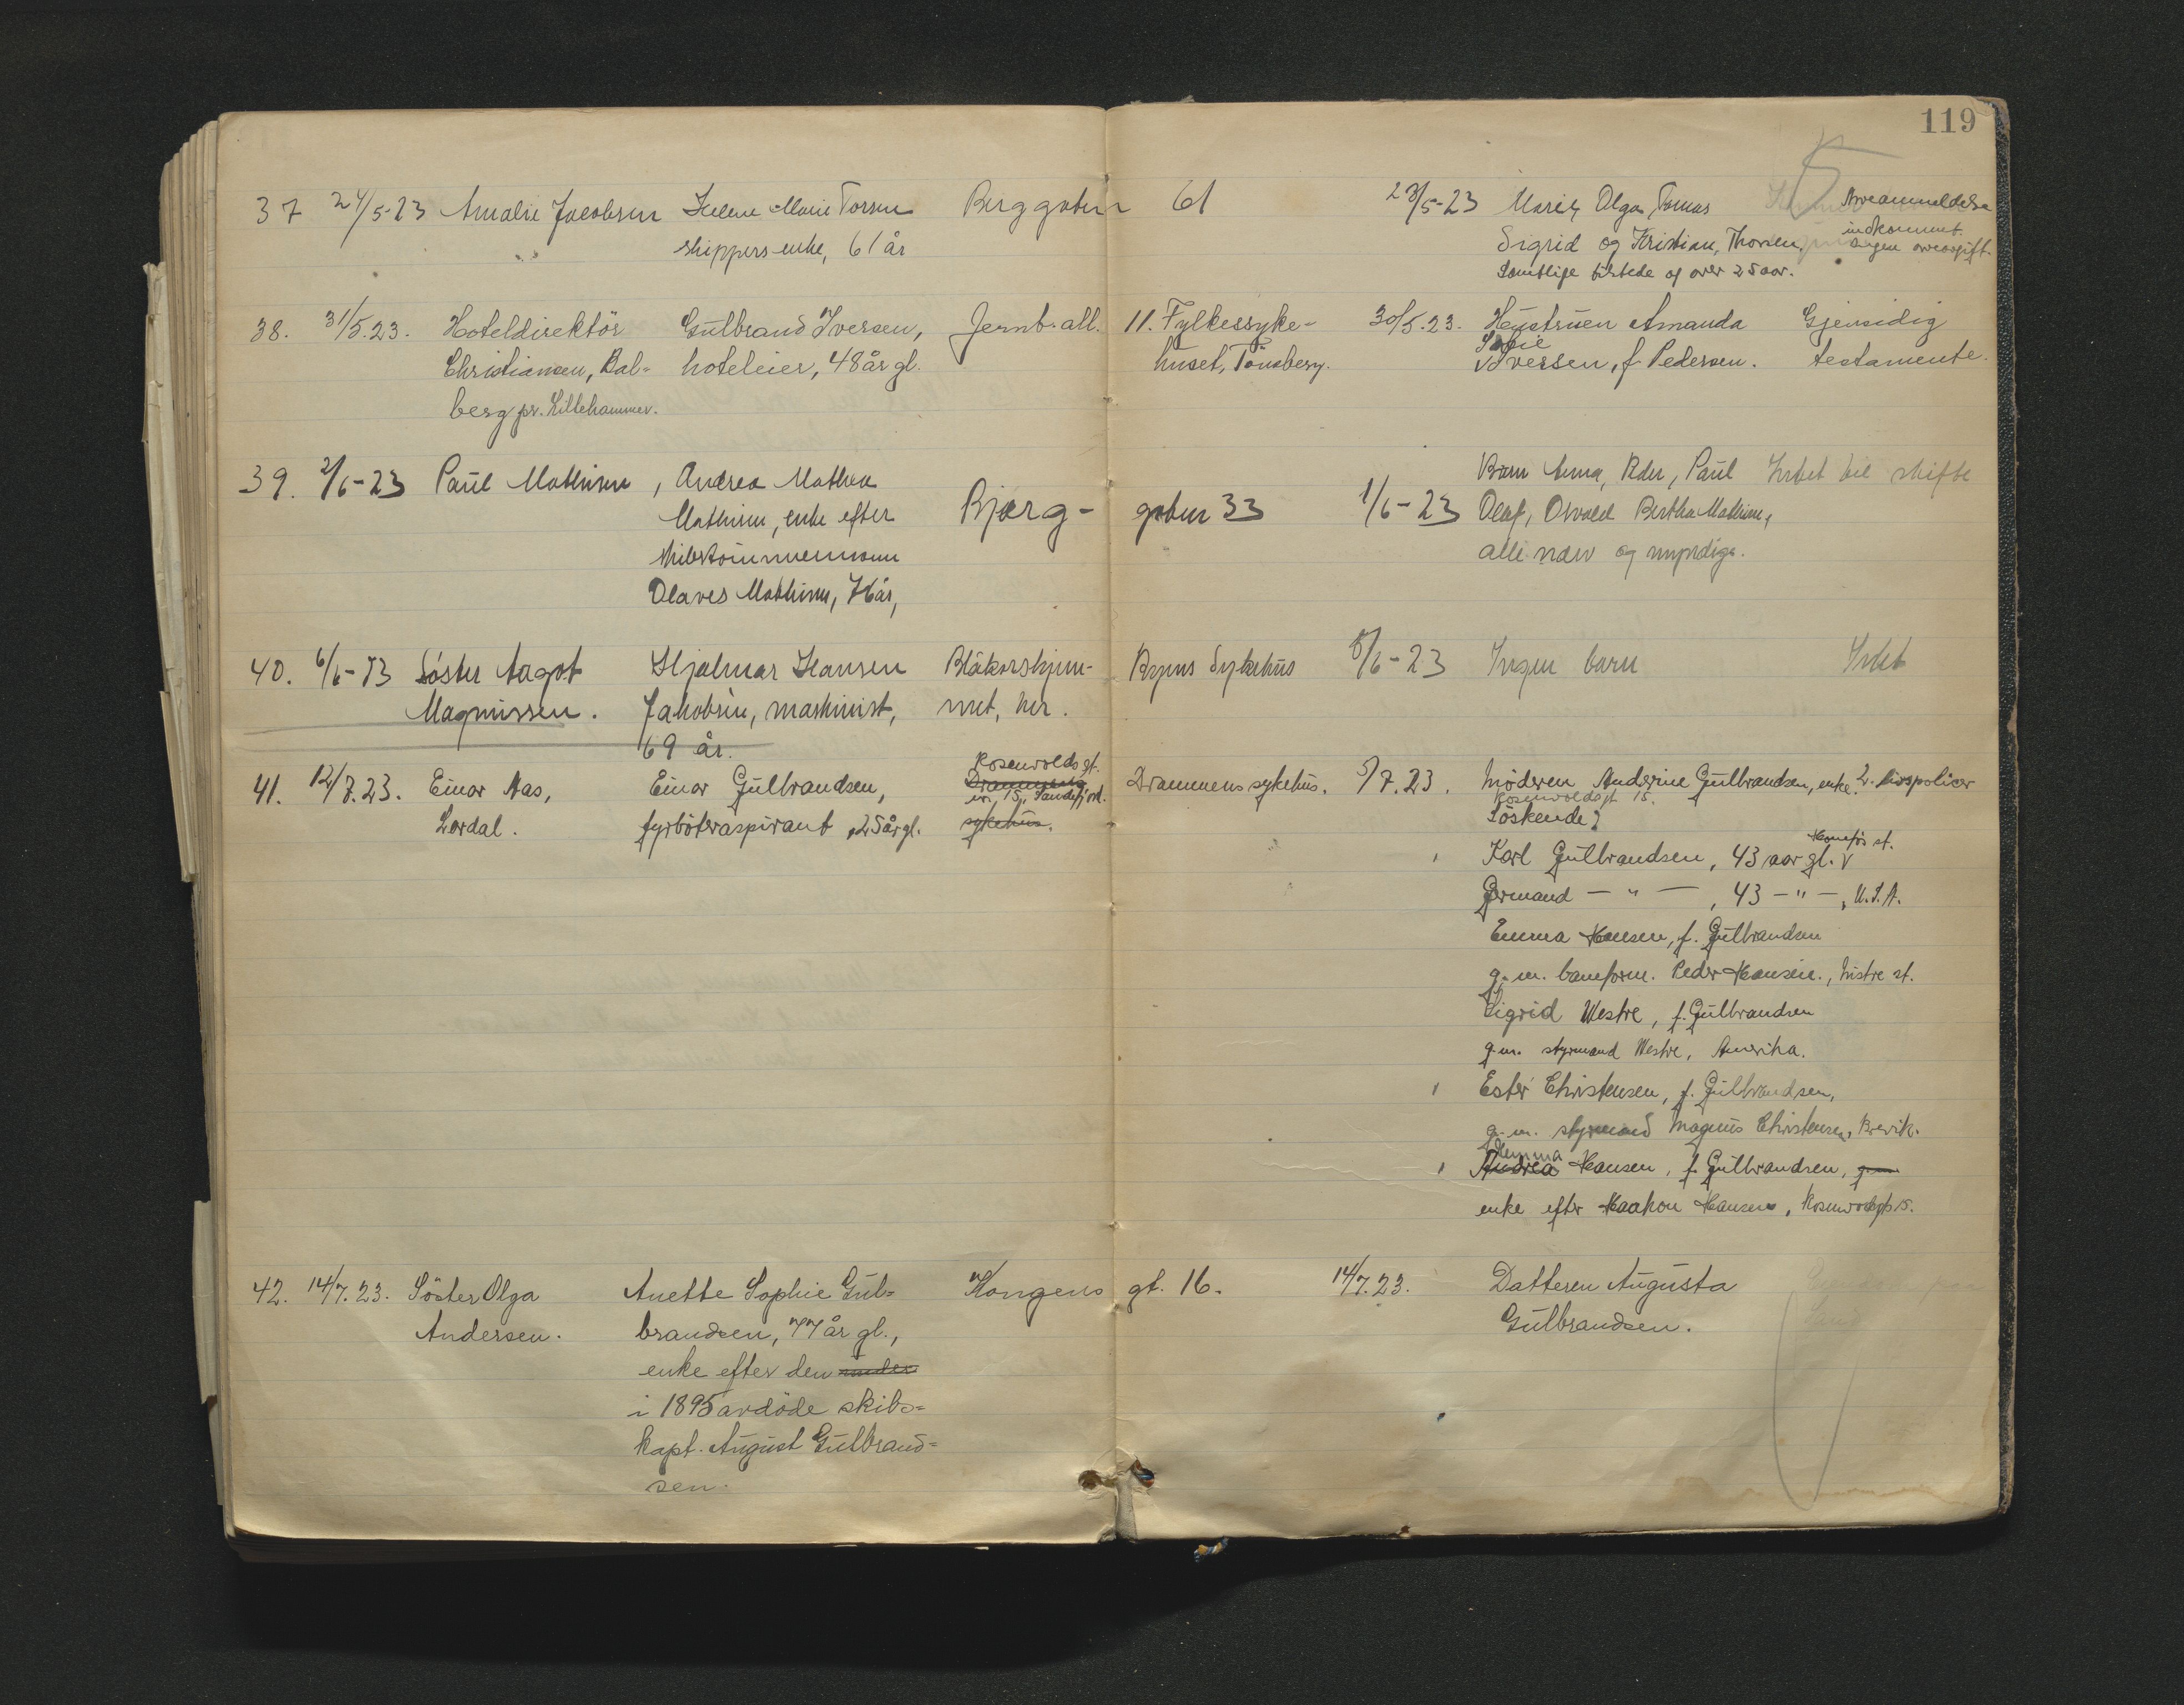 119
37 24/5-23 Amalie Jacobsen Helene Marie Torsen Berggaten 61 23/5-23 Marie, Olga, Tomas Arveanmeldelse
skippersenke, 61 år Sigrid og Kristian, Thorsen, indkommet.
Samtlige tilstede og over 25 aar. Ingen arveavgift.
38. 31/5.23. Hoteldirektör Gulbrand Iversen, Jernb. all. 11. Fylkessyke- 30/5.23. Hustruen Amanda Gjensidig
Sofie
Christiansen, Bal- hoteleier, 48 år gl. huset, Tönsberg. Iversen, f. Pedersen. testamente.
berg pr. Lillehammer.
39. 2/6-23 Paul Mathisen, Andrea Mathea Barn Anna, Peder, Paul Intet til skifte
Mathisen, enke efter Bjerg- gaten 33 1/6-23 Olaf, Osvald Bertha Mathisen,
skibstömmermann alle nærv og myndige.
Olaves Mathisen, 76 år,
40. 6/6-23 Söster Aagot Hjalmar Hansen Blåkorshjem- Bypens Sykehus 5/6-23 Ingen barn Intet
Magnussen. Jakobsen, maskinist, met, her.
69 år.
Rosenvolds gt.
41. 12/7.23. Einar Aas, Einar Gulbrandsen, Drammens Drammens sykehus. 5/7.23. Moderen Anderine Gulbrandsen, enke. 2. livspolicer
nr. 15, Sandefjord. Rosenvoldsgt 15.
Lerdal. fyrböteraspirant, 25 år gl. sykehus. Söskende:
Honefos st.
Karl Gulbrandsen, 43 aar gl. V
Germand — " — , 43 — " —, U.S.A.
Emma Hansen, f. Gulbrandsen
g. m. baneform. Peder Hansen., st.
Sigrid Westre, f. Gulbrandsen
g.m. styrmand Westre, Amerika.
Ester Christensen, f. Gulbrandsen,
g. m. styrmand Magnus Christensen, Brevik.
Andrea Hansen, f. Gulbrandsen, g.m.
enke efter Haakon Hansen, Rosenvoldsgt 15.
42. 14/7.23. Söster Olga Anette Sophie Gul- Kongens gt. 16. 14/7.23. Datteren Augusta
Andersen. brandsen, 77 år gl., Gulbrandsen.
enke efter den under
i 1895 avdöde skibs-
kapt. August Gulbrand-
sen.